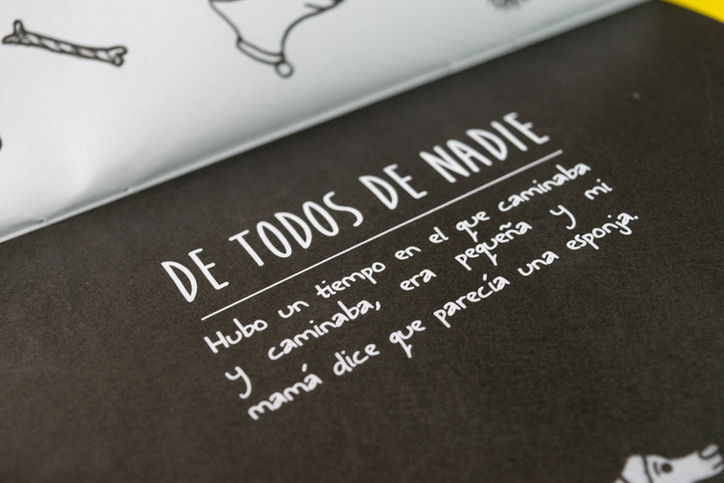 DE TODOS DE NADIE
Hubo un tiempo en el que caminaba
y caminaba, era pequeña y mi
mamá dice que parecía una esponja.